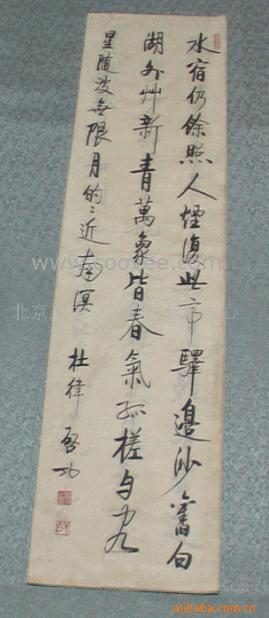 水宿仍餘照人煙復此亭驛邊沙舊白
湖外艸新青萬象皆春氣孤槎自客
星隨波無限月的〻近南溟 杜律 啓功
北京
心
阿里巴巴 alibaba.com.cn